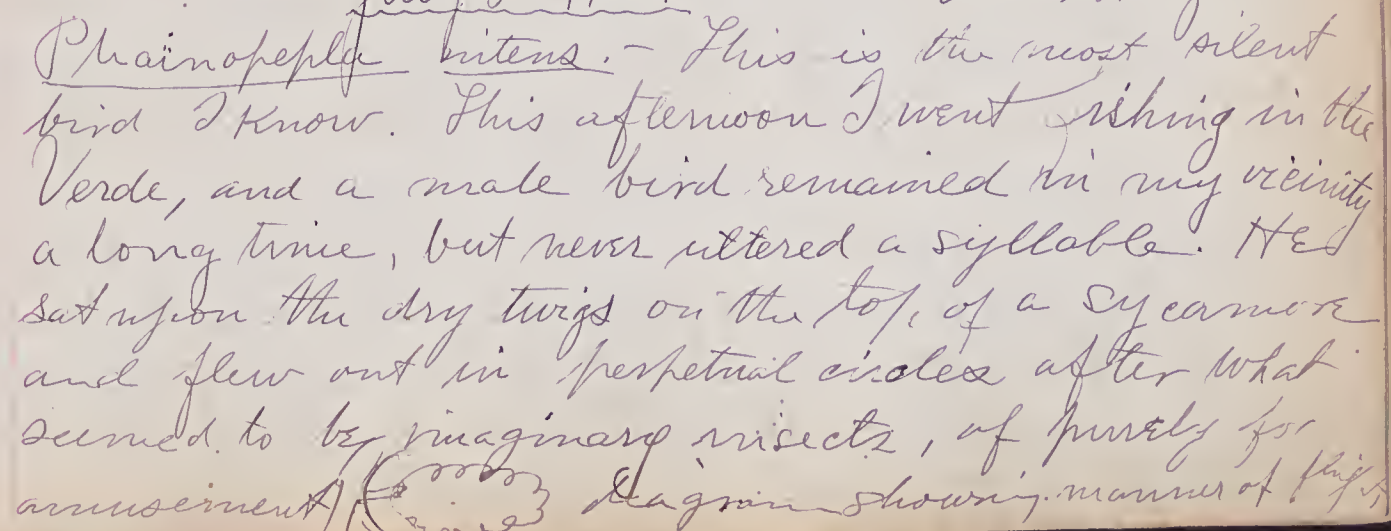 Phaïnopepla nitens. - This is the most silent
bird I know. This afternoon I went fishing in the
Verde, and a male bird remained in my vicinity
a long time, but never uttered a syllable. He
sat upon the dry twigs on the top, of a sycamore
and flew out in perpetual circles after what
seemed to be imaginary insects, of purely for
amusement Diagram showing manner of flight